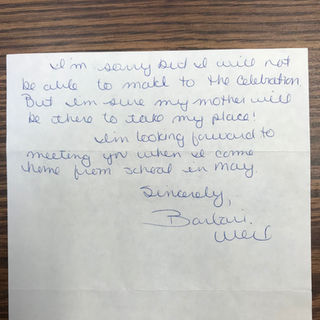 I'm sorry but I will not
be able to make to the celebration.
But I'm sure my mother will
be there to take my place!
I'm looking forward to
meeting you when I come
home from school in May.
Sincerely,